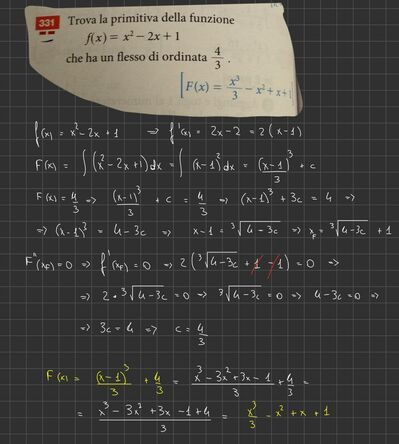 331 Trova la primitiva della funzione
f(x) = x² − 2x + 1
che ha un flesso di ordinata 4/3 .
[F(x) = x³/3 − x² + x + 1]
f(x) = x² − 2x + 1 ⇒ f'(x) = 2x − 2 = 2(x−1)
F(x) = ∫(x² − 2x + 1)dx = ∫(x−1)² dx = (x−1)³/3 + c
F(x) = 4/3 ⇒ (x−1)³/3 + c = 4/3 ⇒ (x−1)³ + 3c = 4 ⇒
⇒ (x−1)³ = 4 − 3c ⇒ x − 1 = ³√(4−3c) ⇒ x_F = ³√(4−3c) + 1
F"(x_F) = 0 ⇒ f'(x_F) = 0 ⇒ 2(³√(4−3c) + 1 − 1) = 0 ⇒
⇒ 2 · ³√(4−3c) = 0 ⇒ ³√(4−3c) = 0 ⇒ 4 − 3c = 0 ⇒
⇒ 3c = 4 ⇒ c = 4/3
F(x) = (x−1)³/3 + 4/3 = (x³ − 3x² + 3x − 1)/3 + 4/3 =
= (x³ − 3x² + 3x − 1 + 4)/3 = x³/3 − x² + x + 1